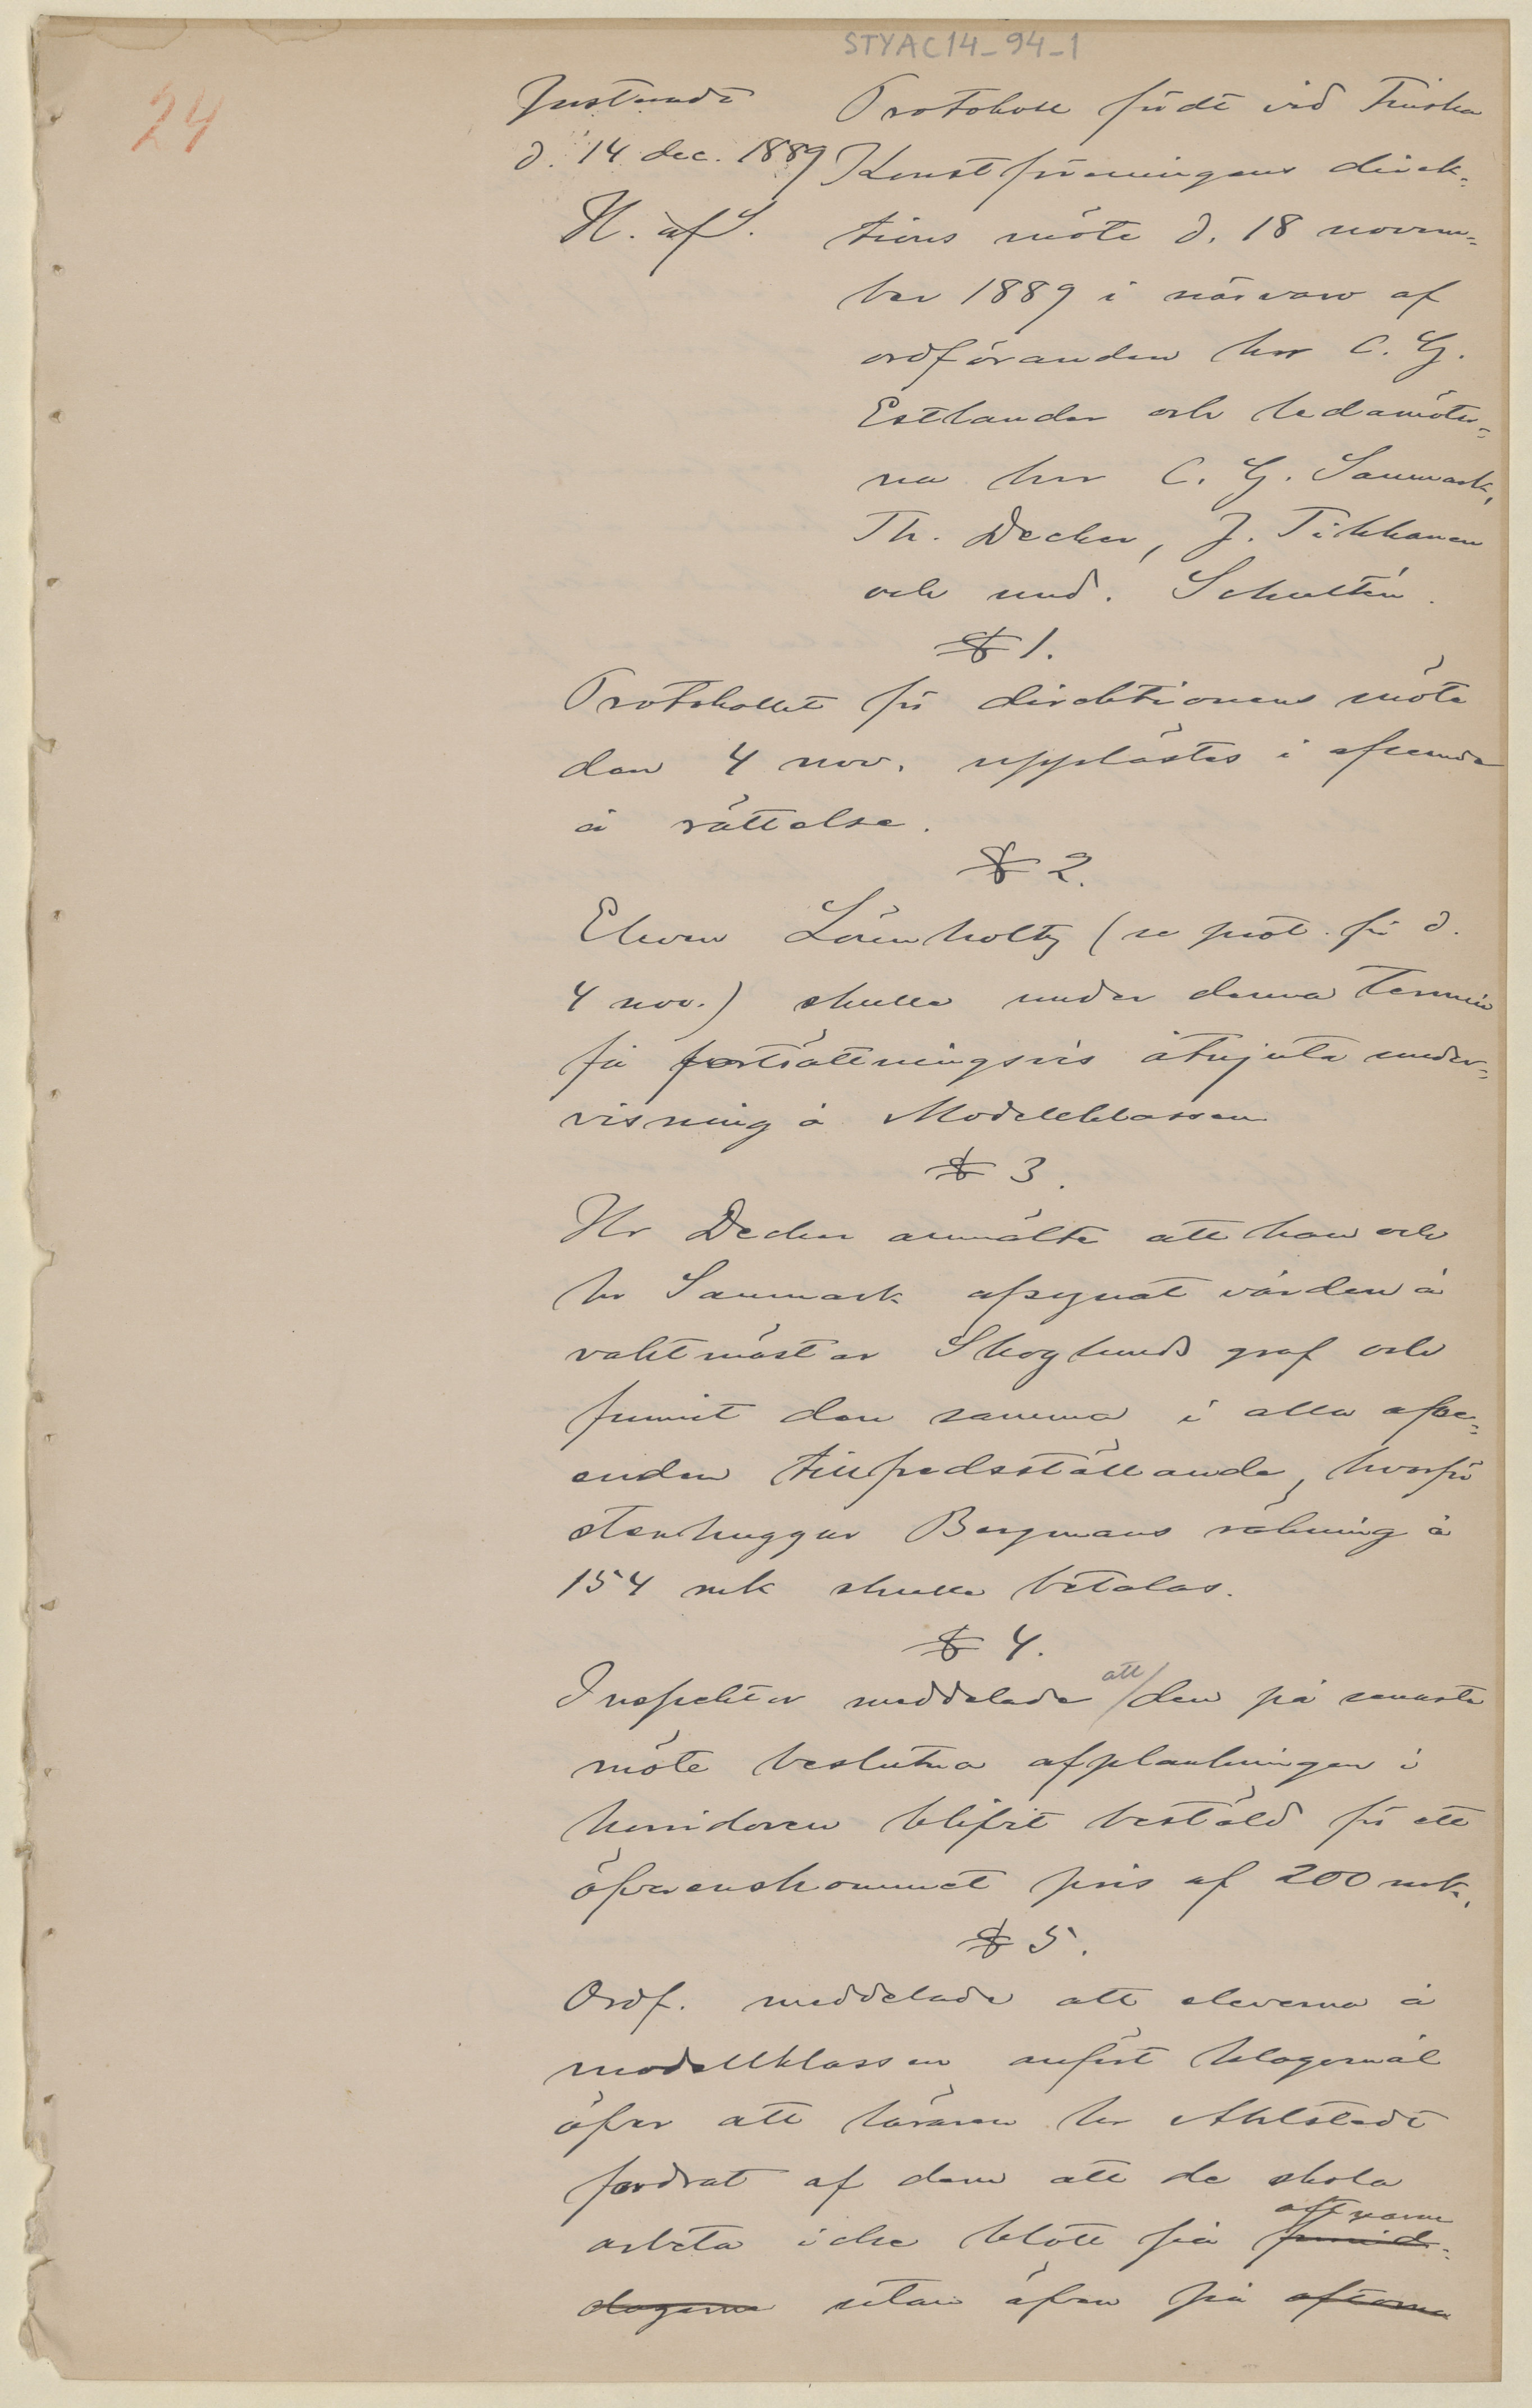 STYAC14-94-1
24
Justeradt
d. 14 dec. 1889
H. af S.
Protokoll fördt vid Finska
Konstföreningens direk-
tions möte d. 18 novem-
ber 1889 i närvaro af
ordföranden hr C. G.
Estlander och ledamöter-
na hrr C. G. Sanmark,
Th. Decker, J. Tikkanen
och und. Schultén.
§ 1.
Protokollet för direktionens möte
den 4 nov. upplästes i afseende
å rättelse.
§ 2.
Eleven Löwnholtz (se prot. för d.
4 nov.) skulle under denna termin
få fortsättningsvis åtnjuta under-
visning å Modellklassen
§ 3.
Hr Decker anmälte att han och
hr Sanmark afsynat vården å
vaktmästar Skoglunds graf och
funnit den samma i alla afse-
enden tillfredsställande, hvarför
stenhuggar Bergmans räkning å
154 mk skulle betalas.
§ 4.
Inspektor meddelade att den på senaste
möte beslutna afplankningen i
korridoren blifvit bestäld för ett
öfverenskommet pris af 200 mk.
§ 5.
Ordf. meddelade att eleverna å
modellklassen anfört klagomål
öfver att läraren hr Ahlstedt
fordrat af dem att de skola
arbeta icke blott på förmid-
aftnarne
dagarne utan äfven på aftarna